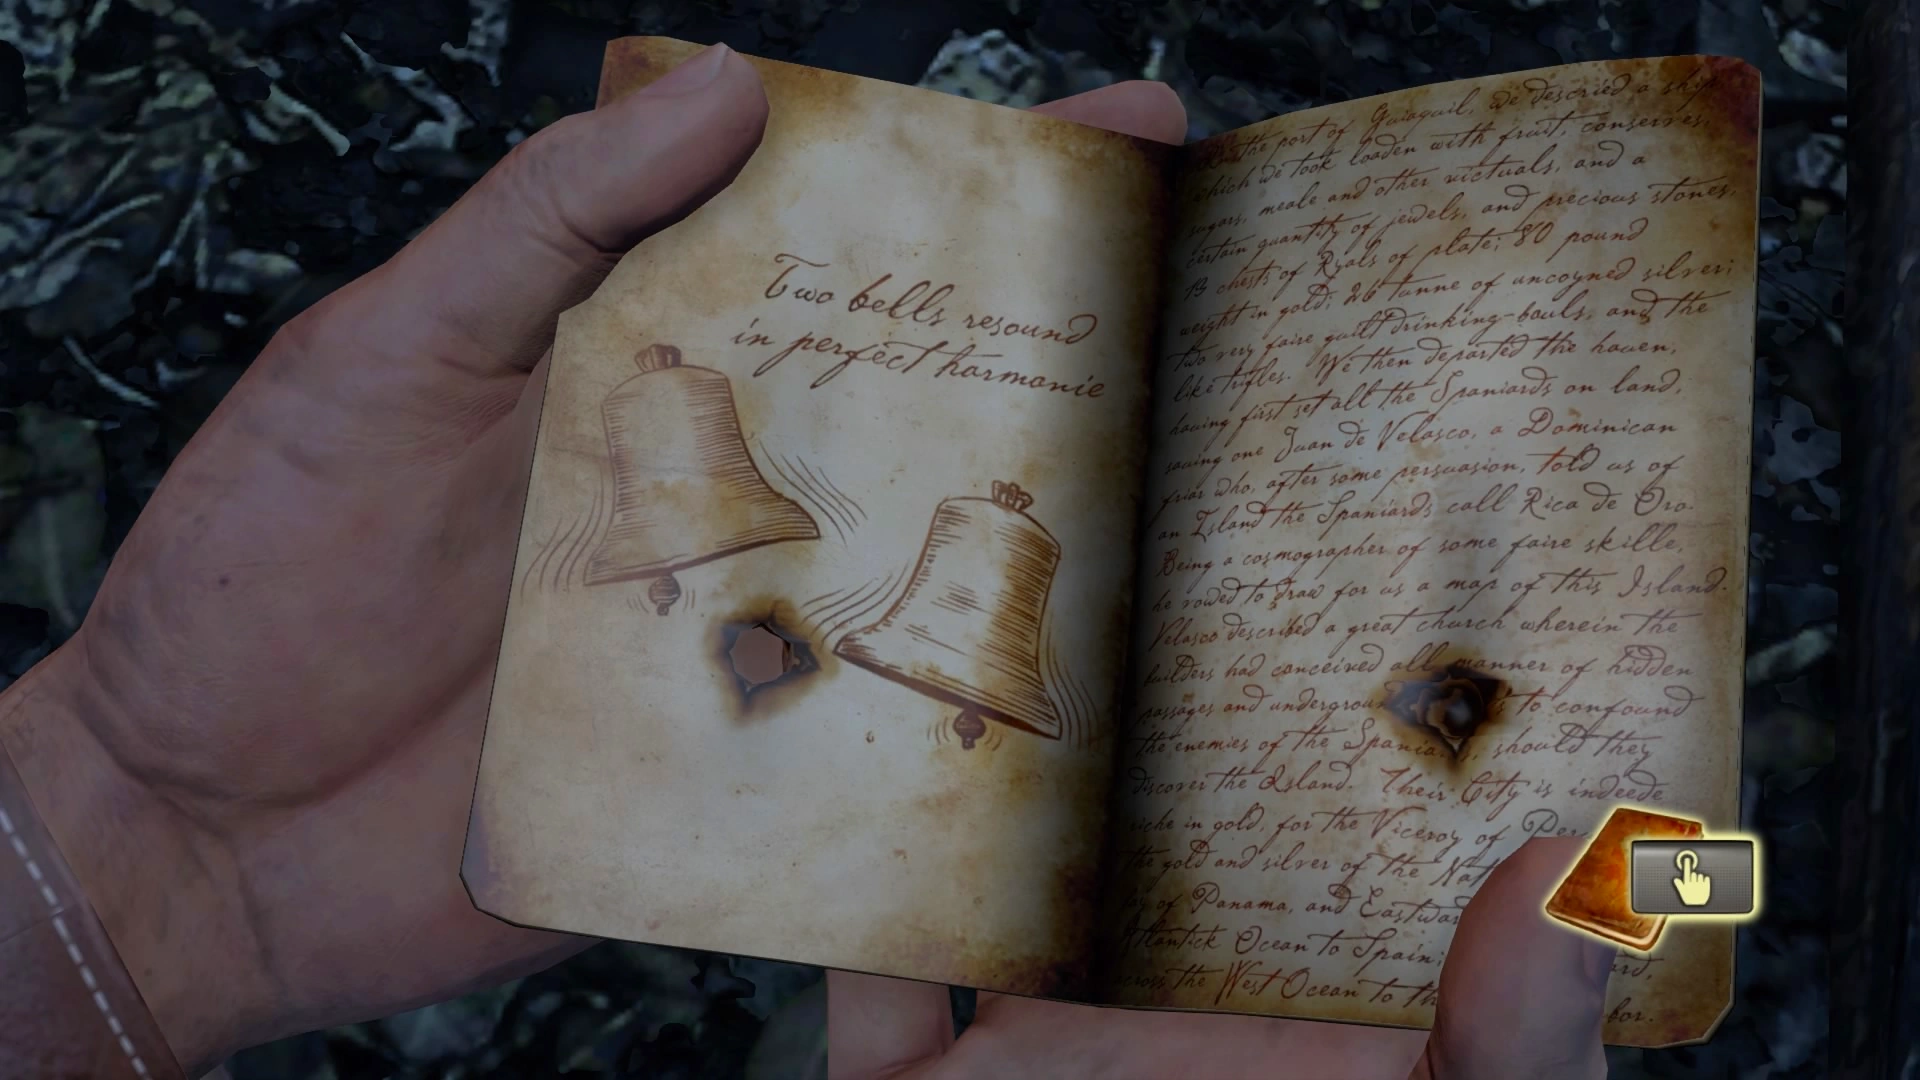 Two bells resound
in perfect harmonie
the port of Guiaquil, we descried a ship
which we took loaden with fruit, conserves,
sugars, meale and other victuals, and a
certain quantity of jewels, and precious stones,
13 chests of Ryals of plate; 80 pound
weight in gold; 26 tunne of uncoyned silver;
two very faire guilt drinking-bouls, and the
like trifles. We then departed the haven,
having first set all the Spaniards on land,
saving one Juan de Velasco, a Dominican
friar who, after some persuasion, told us of
an Island the Spaniards call Rica de Oro.
Being a cosmographer of some faire skille,
he vowed to draw for us a map of this Island.
Velasco described a great church wherein the
builders had conceived all manner of hidden
passages and undergroun to confound
the enemies of the Spania , should they
discover the Island. Their City is indeede
riche in gold, for the Viceroy of Per
the gold and silver of the Nat
of Panama, and Eastwar
Atlantick Ocean to Spain;
across the West Ocean to th